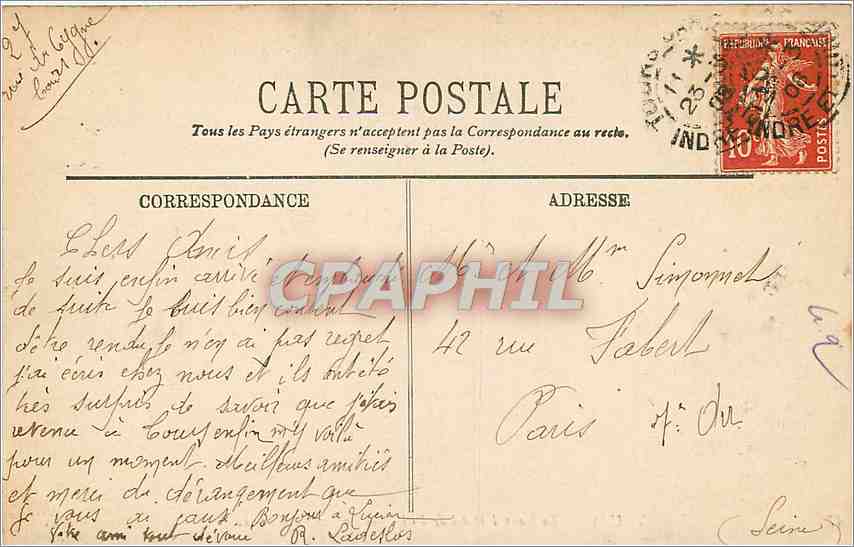 27
rue du Cygne
Tours
CARTE POSTALE
Tous les Pays étrangers n'acceptent pas la Correspondance au recto.
(Se renseigner à la Poste).
CORRESPONDANCE
ADRESSE
REPUBLIQUE FRANÇAISE
10
POSTES
TOURS
INDRE ET
Chers Amis
Je suis enfin arrivé et
de suite Je suis bien content
d'être rendu Je n'en ai pas regret
j'ai écris chez nous et ils ont été
très surpris de savoir que j'étais
revenu à Tours enfin m'y voilà
pour un moment. Meilleurs amitiés
et merci du dérangement que
je vous ai causé Bonjour à Lucien
Votre ami tout dévoué R.
Mr et Mme Simonnet
42 rue Fabert
Paris 7e Arr.
(Seine)
CPAPHIL